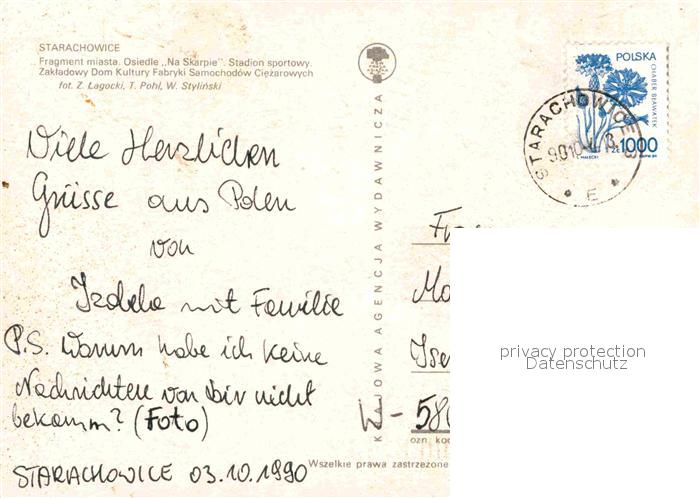 STARACHOWICE
Fragment miasta. Osiedle „Na Skarpie". Stadion sportowy.
Zakładowy Dom Kultury Fabryki Samochodów Ciężarowych
fot. Z. Łagocki, T. Pohl, W. Styliński
Viele Herzlichen
Grüsse aus Polen
von
Izabela mit Familie
P.S. Warum habe ich keine
Nachrichten von Dir nicht
bekomm? (Foto)
STARACHOWICE 03.10.1990
KRAJOWA AGENCJA WYDAWNICZA
POLSKA
CHABER BŁAWATEK
zł 1000
STARACHOWICE 3
E
Ise
580
ozn. kod
Wszelkie prawa zastrzeżone
privacy protection
Datenschutz